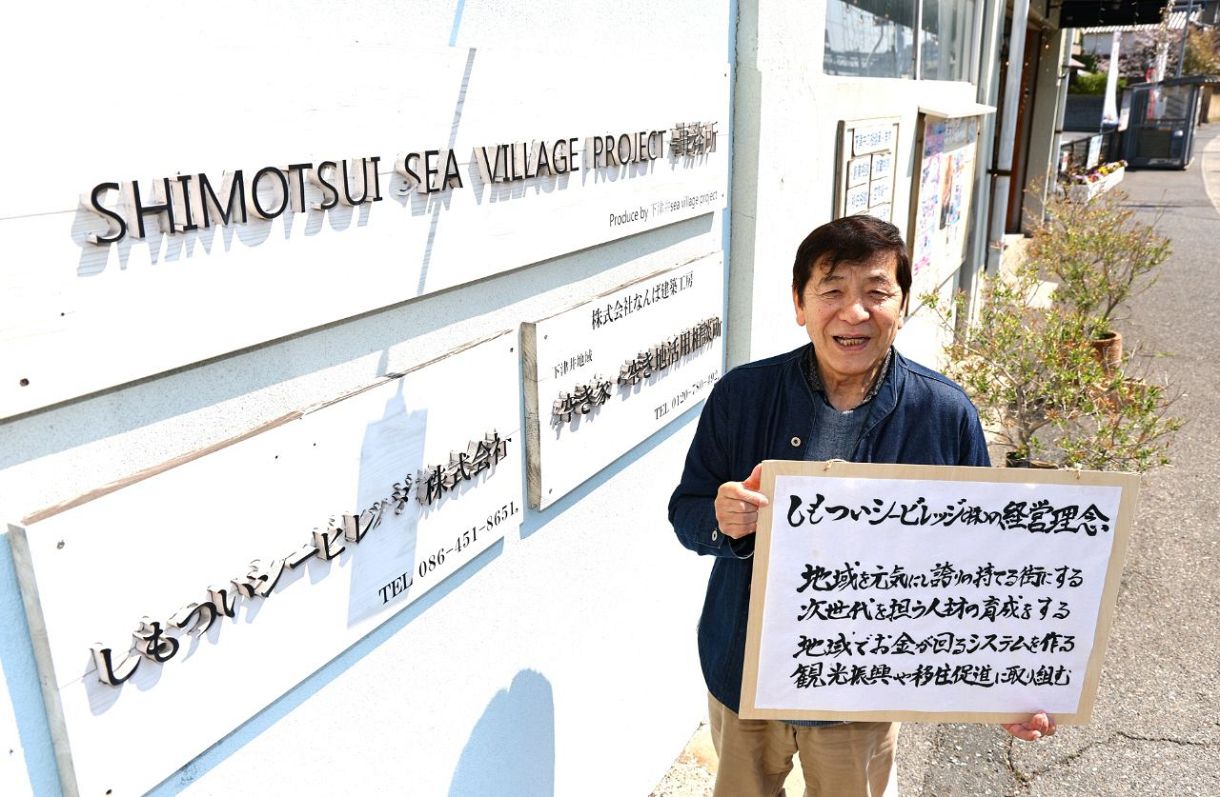 SHIMOTSUI SEA VILLAGE PROJECT 事務所
Produce by 下津井sea village project
株式会社なんば建築工房
下津井地域
空き家・空き地活用相談所
TEL 0120-780-492
しもついシービレッジ 株式会社
TEL 086-451-8651
しもついシービレッジ(株)の経営理念
地域を元気にし誇りの持てる街にする
次世代を担う人材の育成をする
地域でお金が回るシステムを作る
観光振興や移住促進に取り組む